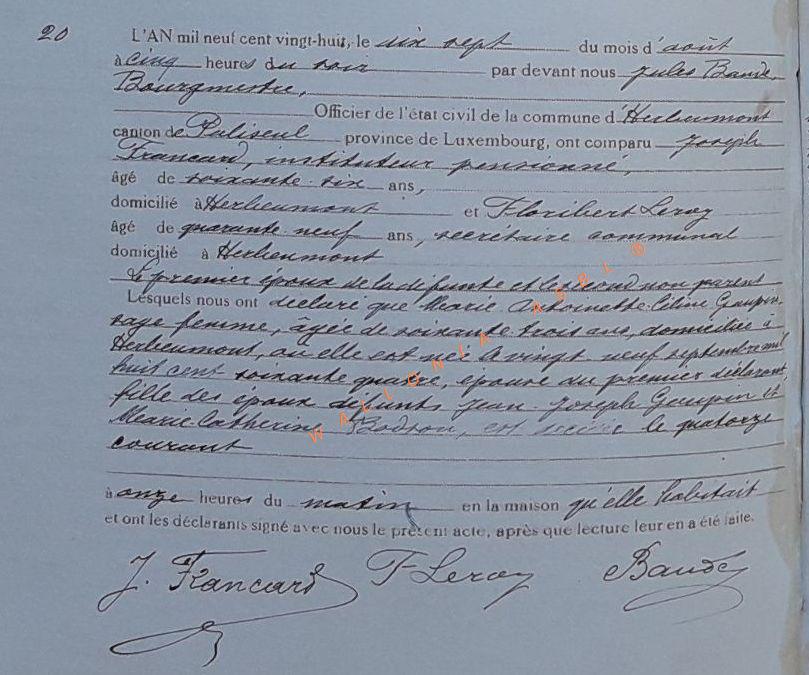 20
L'AN mil neuf cent vingt-huit, le six sept du mois d'août
à cinq heures du soir par devant nous Jules Baude,
Bourgmestre,
Officier de l'état civil de la commune d'Herbeumont
canton de Paliseul province de Luxembourg, ont comparu Joseph
Francard, instituteur pensionné,
âgé de soixante-six ans,
domicilié à Herbeumont et Floribert Leroy
âgé de quarante-neuf ans, secrétaire communal
domicilié à Herbeumont
Le premier époux de la défunte et le second non parent
Lesquels nous ont déclaré que Marie-Antoinette-Céline Goupin,
sage femme, âgée de soixante trois ans, domiciliée à
Herbeumont, où elle est née le vingt-neuf septembre mil
huit cent soixante quatre, épouse du premier déclarant
fille des époux défunts Jean Joseph Goupin et
Marie Catherine Bodson, est le quatorze
courant
à onze heures du matin en la maison qu'elle habitait
et ont les déclarants signé avec nous le présent acte, après que lecture leur en a été faite.
J. Francard F Leroy Baude
WALLONIA ASBL ®